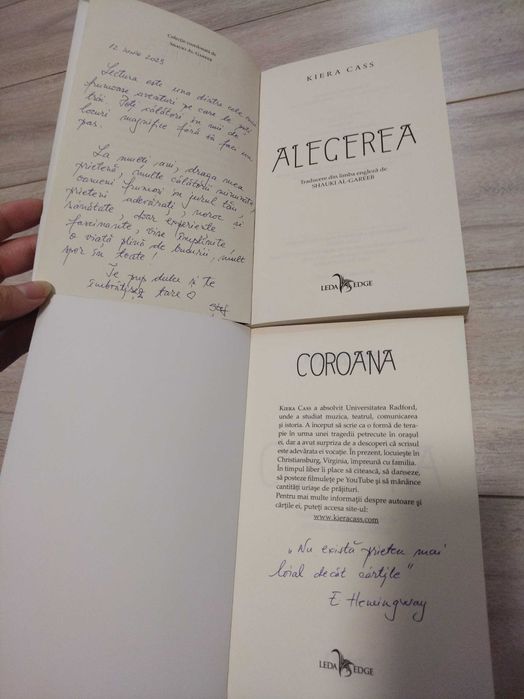 Colecție coordonată de
SHAUKI AL-GAREEB
12 iunie 2023
Lectura este una dintre cele mai
frumoase aventuri pe care le poți
trăi. Poți călători în mii de
locuri magnifice fără să faci un
pas.
La mulți ani, draga mea
prietenă, multe călătorii minunate,
oameni frumoși în jurul tău,
prieteni adevărați, noroc și
sănătate, doar experiențe
fascinante, vise împlinite,
o viață plină de bucurii, mult
spor în toate!
Te pup dulce și te
îmbrățișez tare ♡
KIERA CASS
ALEGEREA
Traducere din limba engleză de
SHAUKI AL-GAREEB
LEDA EDGE
COROANA
KIERA CASS a absolvit Universitatea Radford,
unde a studiat muzica, teatrul, comunicarea
și istoria. A început să scrie ca o formă de tera-
pie în urma unei tragedii petrecute în orașul
ei, dar a avut surpriza de a descoperi că scrisul
este adevărata ei vocație. În prezent, locuiește în
Christiansburg, Virginia, împreună cu familia.
În timpul liber îi place să citească, să danseze,
să posteze filmulețe pe YouTube și să mănânce
cantități uriașe de prăjituri.
Pentru mai multe informații despre autoare și
cărțile ei, puteți accesa site-ul:
www.kieracass.com
„Nu există prieten mai
loial decât cărțile"
E Hemingway
LEDA EDGE